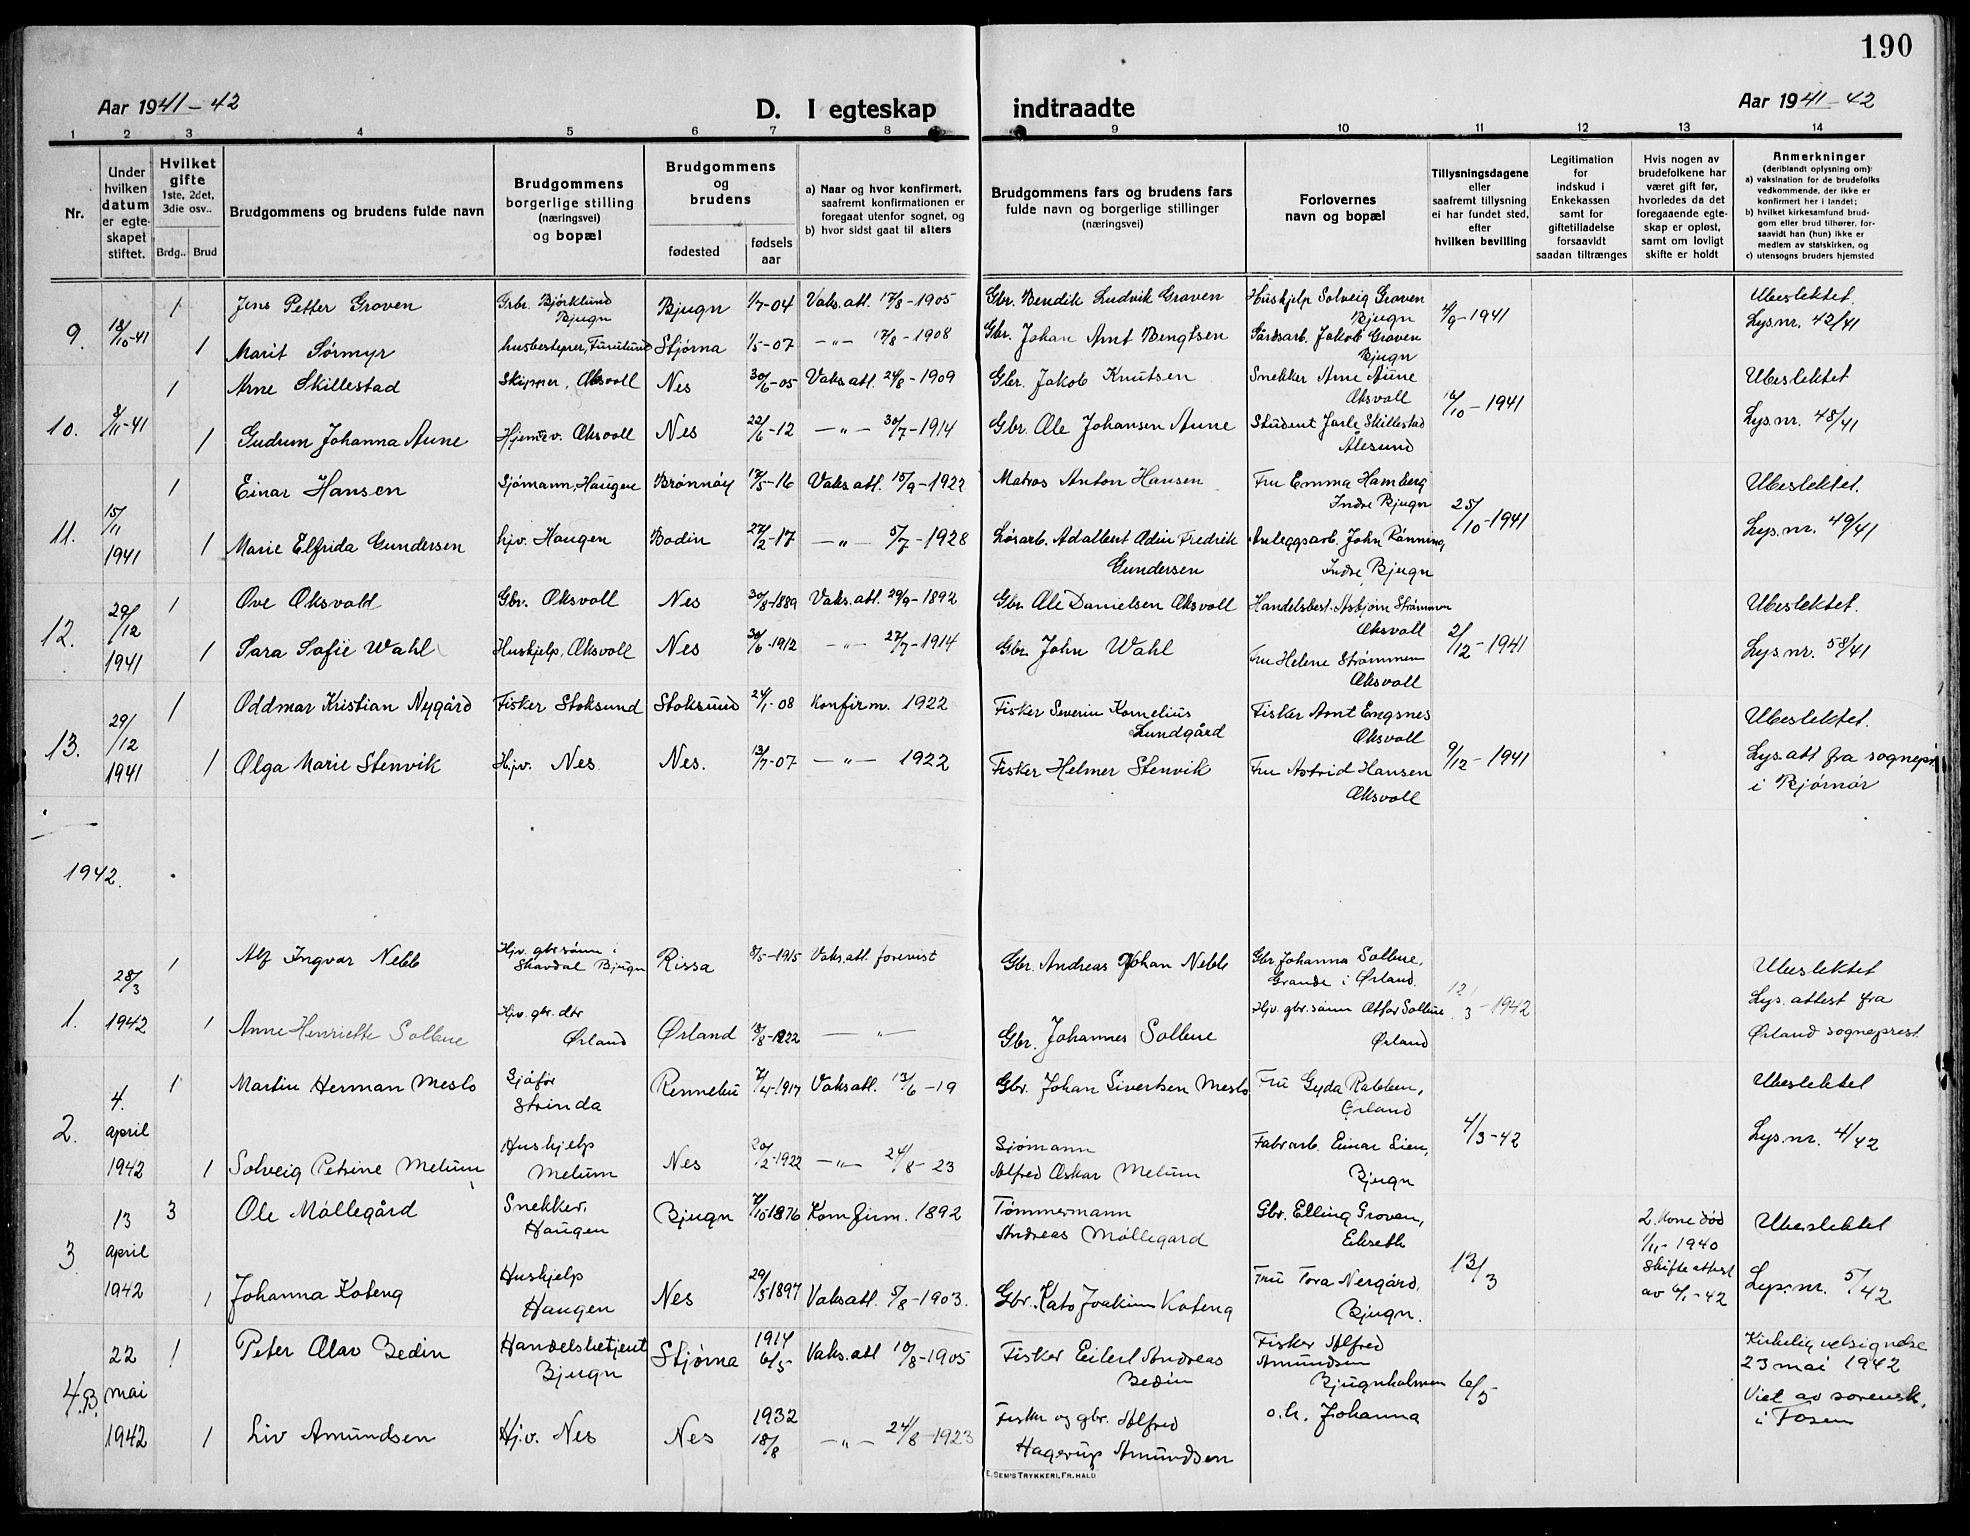 190
Aar 1941-42
D. I egteskap indtraadte
Aar 1941-42
1 2 3 4 5 6 7 8 9 10 11 12 13 14
Nr.
Under hvilken datum er egte-skapet stiftet.
Hvilket gifte
1ste, 2det, 3die osv..
Brdg.. Brud
Brudgommens og brudens fulde navn
Brudgommens borgerlige stilling (næringsvei) og bopæl
Brudgommens og brudens
fødested
fødsels aar
a) Naar og hvor konfirmert, saafremt konfirmationen er foregaat utenfor sognet, og
b) hvor sidst gaat til alters
Brudgommens fars og brudens fars fulde navn og borgerlige stillinger (næringsvei)
Forlovernes navn og bopæl
Tillysningsdagene eller saafremt tillysning ei har fundet sted, efter hvilken bevilling
Legitimation for indskud i Enkekassen samt for giftetilladelse forsaavidt saadan tiltrænges
Hvis nogen av brudefolkene har været gift før, hvorledes da det foregaaende egte-skap er opløst, samt om lovligt skifte er holdt
Anmerkninger (deriblandt oplysning om):
a) vaksination for de brudefolks vedkommende, der ikke er konfirmert her i landet;
b) hvilket kirkesamfund brud-gom eller brud tilhører, for-saavidt han (hun) ikke er medlem av statskirken, og
c) utensogns bruders hjemsted
9. 18/10-41
1 Jens Petter Groven Gbr. Bjørklund Bjugn Bjugn 1/7-04 Vaks.att. 17/8-1905 Gbr. Bendik Ludvik Groven Huskjelp Solveig Groven Bjugn 4/9-1941 Ubeslektet.
1 Marit Sørmyr husbestyrer, Furulund Stjørna 1/5-07 -"- 17/8-1908 Gbr. Johan Arnt Bengtsen Gårdsarb. Jakob Groven Bjugn Lys.nr. 42/41
10. 8/11-41
1 Arne Skillestad Skipper, Oksvoll Nes 30/6-05 Vaks.att. 24/8-1909 Gbr. Jakob Knutsen Snekker Arne Aune Oksvoll 16/10-1941 Ubeslektet
1 Gudrun Johanna Aune Hjemv. Oksvoll Nes 22/6-12 -"- 30/7-1914 Gbr. Ole Johansen Aune Student Jarle Skillestad Ålesund Lys.nr. 48/41
11. 15/11 1941
1 Einar Hansen Sjømann, Haugen Brønnøy 17/5-16 Vaks.att. 15/9-1922 Matros Anton Hansen Fru Emma Hamberg Indre Bjugn 25/10-1941 Ubeslektet.
1 Marie Elfrida Gundersen hjv. Haugen Bodin 27/2-17 -"- 5/7-1928 Løsarb. Adalbert Odin Fredrik Gundersen Anleggsarb. John Rønning Indre Bjugn Lys.nr. 49/41
12. 29/12 1941
1 Ove Oksvoll Gbr. Oksvoll Nes 30/8-1889 Vaks.att. 29/9-1892 Gbr. Ole Danielsen Oksvoll Handelsbest. Asbjørn Strømmen Oksvoll 2/12-1941 Ubeslektet.
1 Sara Sofie Wahl Huskjelp, Oksvoll Nes 30/6-1912 -"- 27/7-1914 Gbr. John Wahl Fru Helene Strømmen Oksvoll Lys.nr. 58/41
13. 29/12 1941
1 Oddmar Kristian Nygård Fisker Stoksund Stoksund 24/1-08 Konfirm. 1922 Fisker Severin Kornelius Lundgård Fisker Arnt Engsnes Oksvoll 9/12-1941 Ubeslektet.
1 Olga Marie Stenvik Hjv. Nes Nes. 13/7-07 -"- 1922 Fisker Helmer Stenvik Fru Astrid Hansen Oksvoll Lys.att fra sognepr. i Bjørnør
1942.
1. 28/3 1942
1 Alf Ingvar Nebb Hjv. gbr sønn i Skavdal Bjugn Rissa 8/5-1915 Vaks.att forevist Gbr. Andreas Johan Nebb Gbr Johannes Solbue, Grande i Ørland. 12/3-1942 Ubeslektet
1 Anne Henriette Solbue Hjv. gbr. dtr Ørland Ørland 13/8-1922 -"- Gbr. Johannes Solbue Hjv. gbr. sønn Solbue Ørland Lys.attest fra Ørland sogneprest
2. 4. april 1942
1 Martin Herman Meslo Sjåfør Strinda Rennebu 7/4-1917 Vaks att. 13/6-19 Gbr. Johan Sivertsen Meslo Fru Gyda Rabben, Ørland 4/3-42 Ubeslektet
1 Solveig Petrine Melum Huskjelp Melum Nes 20/2-1922 -"- 24/8-23 Sjømann Alfred Oskar Melum Fabrarb. Einar Lien, Bjugn Lys.nr. 4/42
3 13 april 1942
3 Ole Møllegård Snekker, Haugen Bjugn 7/10 1876 Konfirm. 1892 Tømmermann Andreas Møllegård Gbr. Elling Groven, Ekseth 13/3 2. kone død 1/11-1940 Skifteattest av 6/1-42 Ubeslektet
1 Johanna Koteng Huskjelp Haugen Nes 29/5 1897 Vaks att. 5/8-1903. Gbr. Kato Joakim Koteng Fru Tora Nergård, Bjugn. Lys.nr. 5/42
4.B. 22 mai 1942
1 Peter Olav Bedin Handelsbetjent Bjugn Stjørna 1914 6/5 Vaks.att 10/8-1905 Fisker Eilert Andreas Bedin Fisker Alfred Amundsen Bjugnholmen 6/5 Kirkelig velsignelse 23 mai 1942
1 Liv Amundsen Hj.v. Nes Nes 1932 18/8 -"- 24/8-1923 Fisker og gbr. Alfred Hagerup Amundsen o.h. Johanna Viet av sorensk. i Fosen
E. SEM'S TRYKKERI, FR. HALD